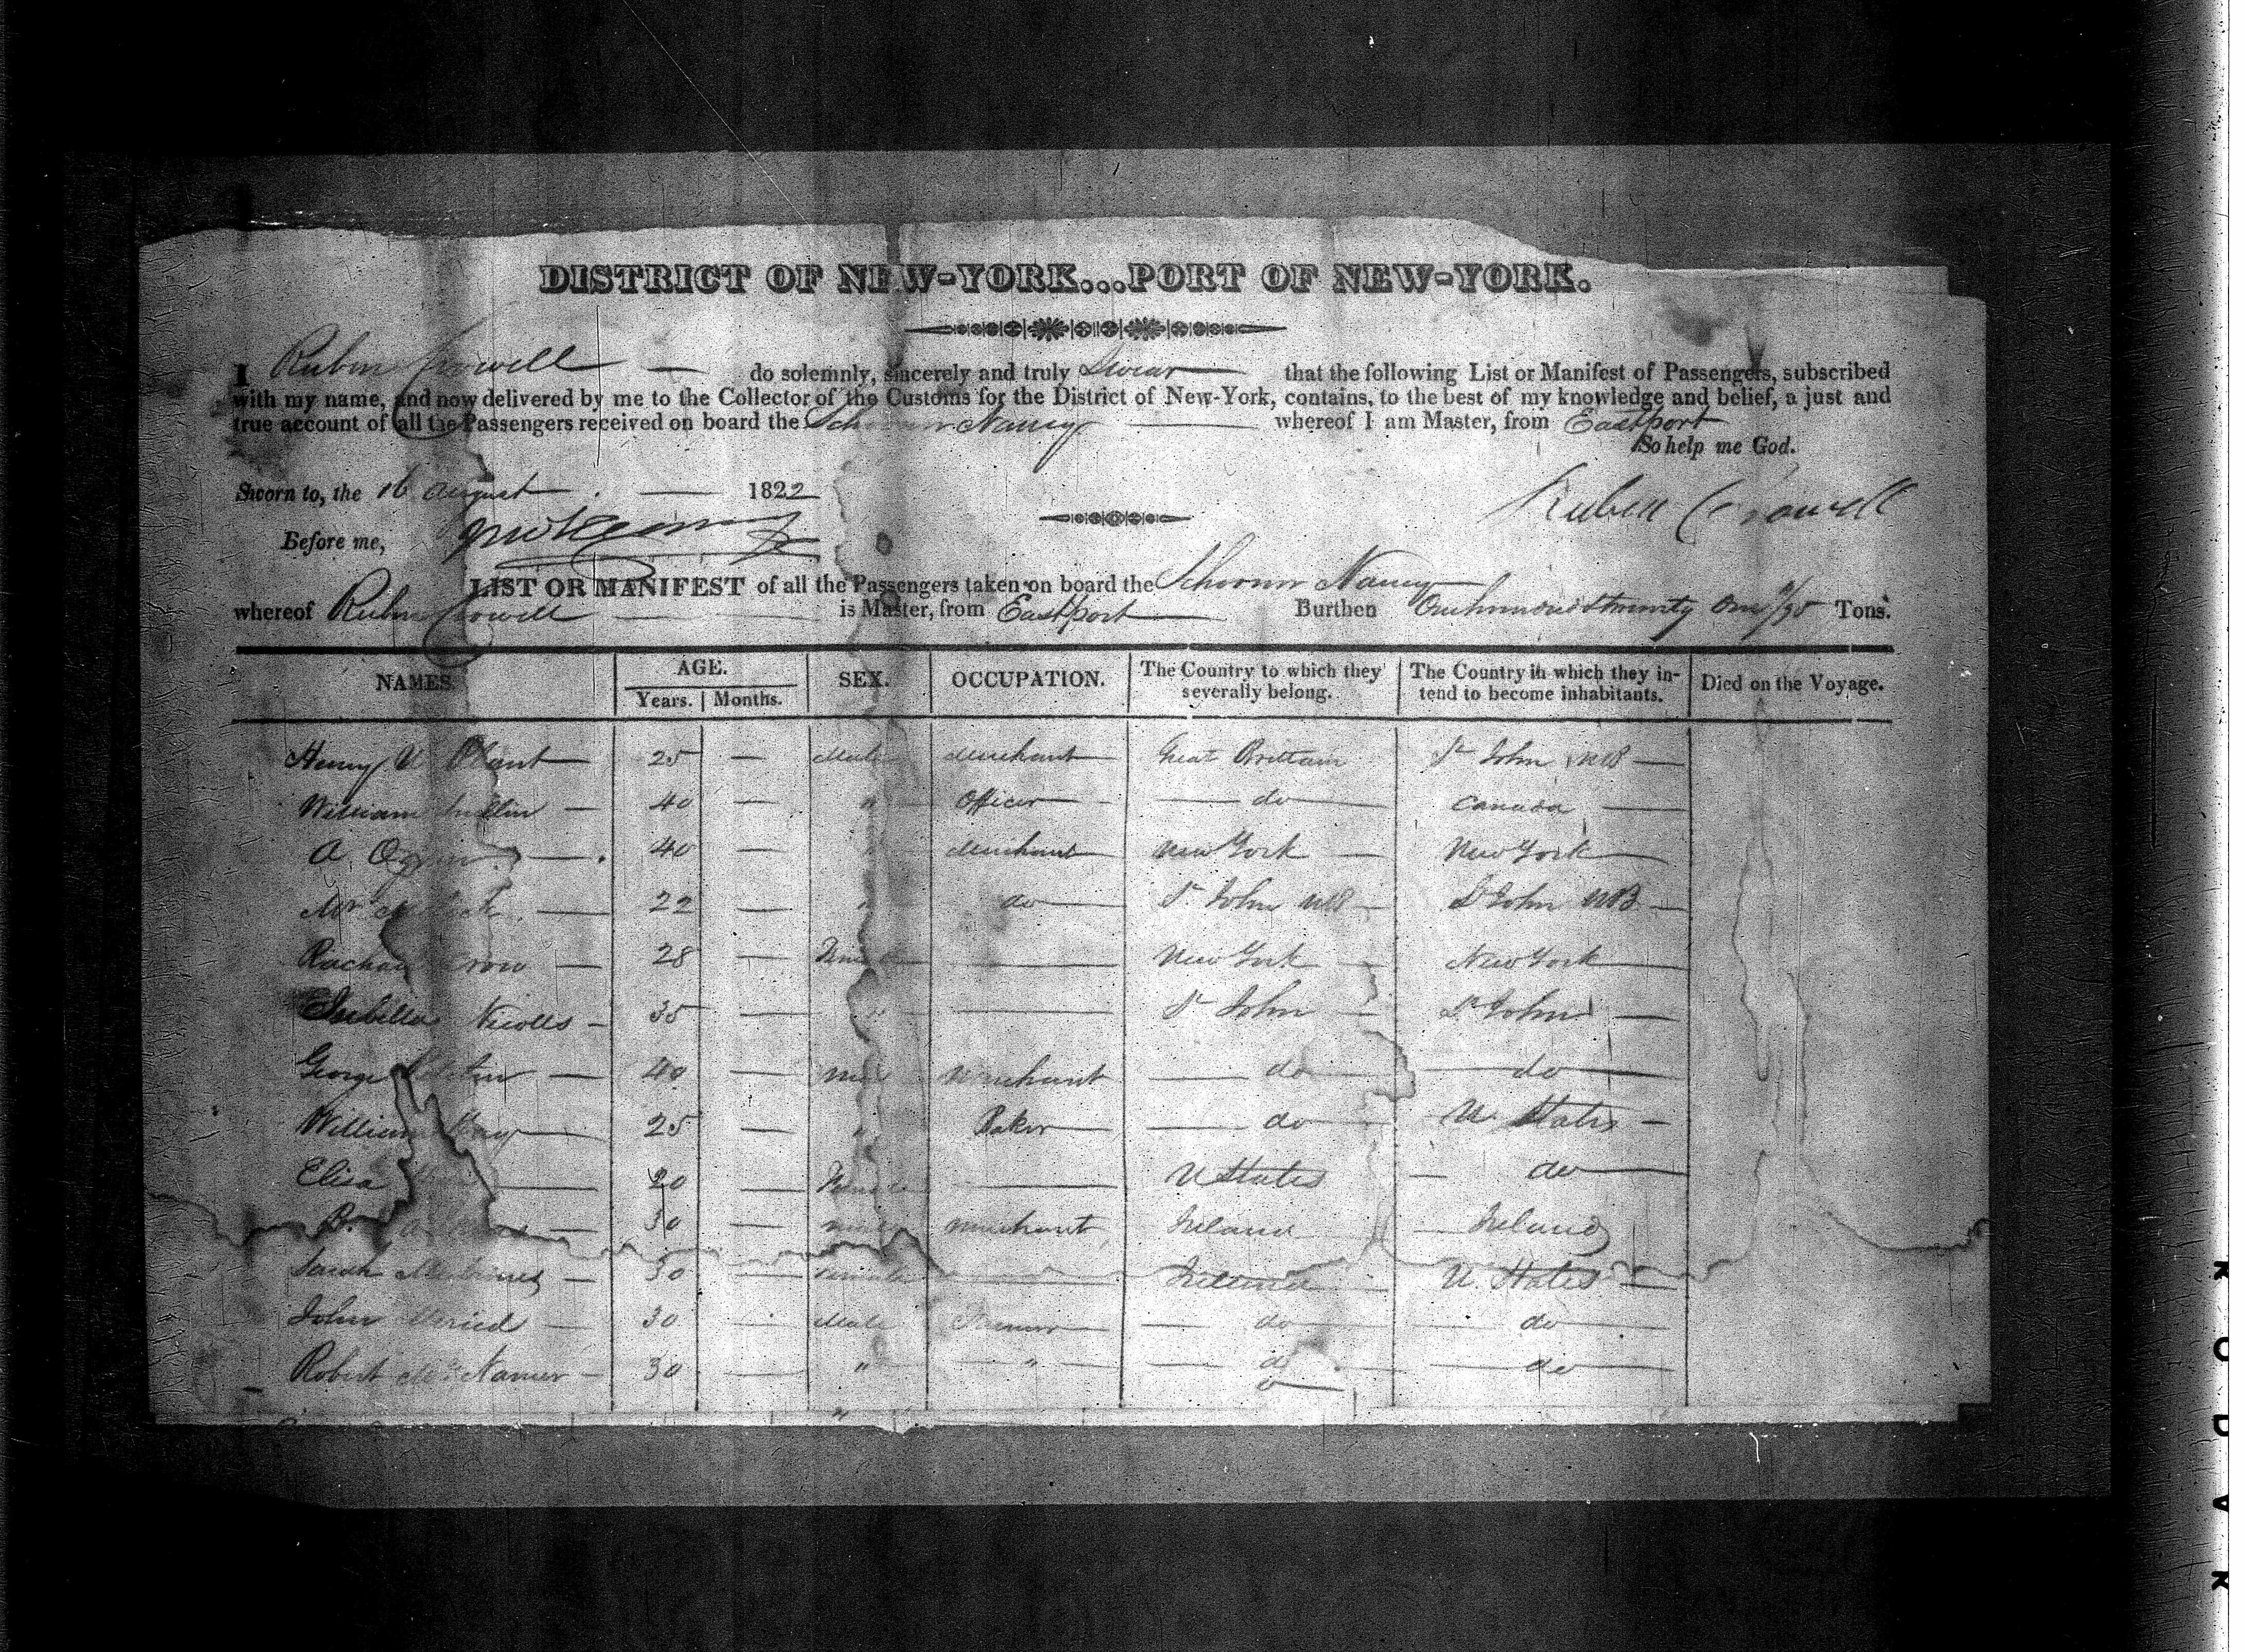 DISTRICT OF NEW-YORK...PORT OF NEW-YORK.
I Rubin Crowell — do solemnly, sincerely and truly Swear — that the following List or Manifest of Passengers, subscribed
with my name, and now delivered by me to the Collector of the Customs for the District of New-York, contains, to the best of my knowledge and belief, a just and
true account of all the Passengers received on board the Schooner Nancy — whereof I am Master, from Eastport
So help me God.
Sworn to, the 16 August — 1822
Ruben Crowell
Before me,
LIST OR MANIFEST of all the Passengers taken on board the Schooner Nancy
whereof Rubin Crowell — is Master, from Eastport — Burthen Tons.
NAMES. AGE. Years. Months. SEX. OCCUPATION. The Country to which they severally belong. The Country in which they intend to become inhabitants. Died on the Voyage.
Henry 25 — Male Merchant Great Brittain St John NB —
William 40 — " Officer — do — Canada —
A. 40 — " Merchant New York — New York —
Mr 22 — " do — St John NB — St John NB —
28 — Female — New York — New York —
Isabella Nicolls — 35 — " — St John — St John —
George — 40 — Male Merchant — do — — do —
William — 25 — " Baker — do — U. States —
Eliza — 20 — Female — U States — do —
B. — 30 — Male Merchant Ireland — Ireland
Sarah — 30 — Female — Ireland — U. States —
John — 30 — Male Farmer — — do — — do —
Robert McNamer — 30 — " — " — — do — — do —
KODAK